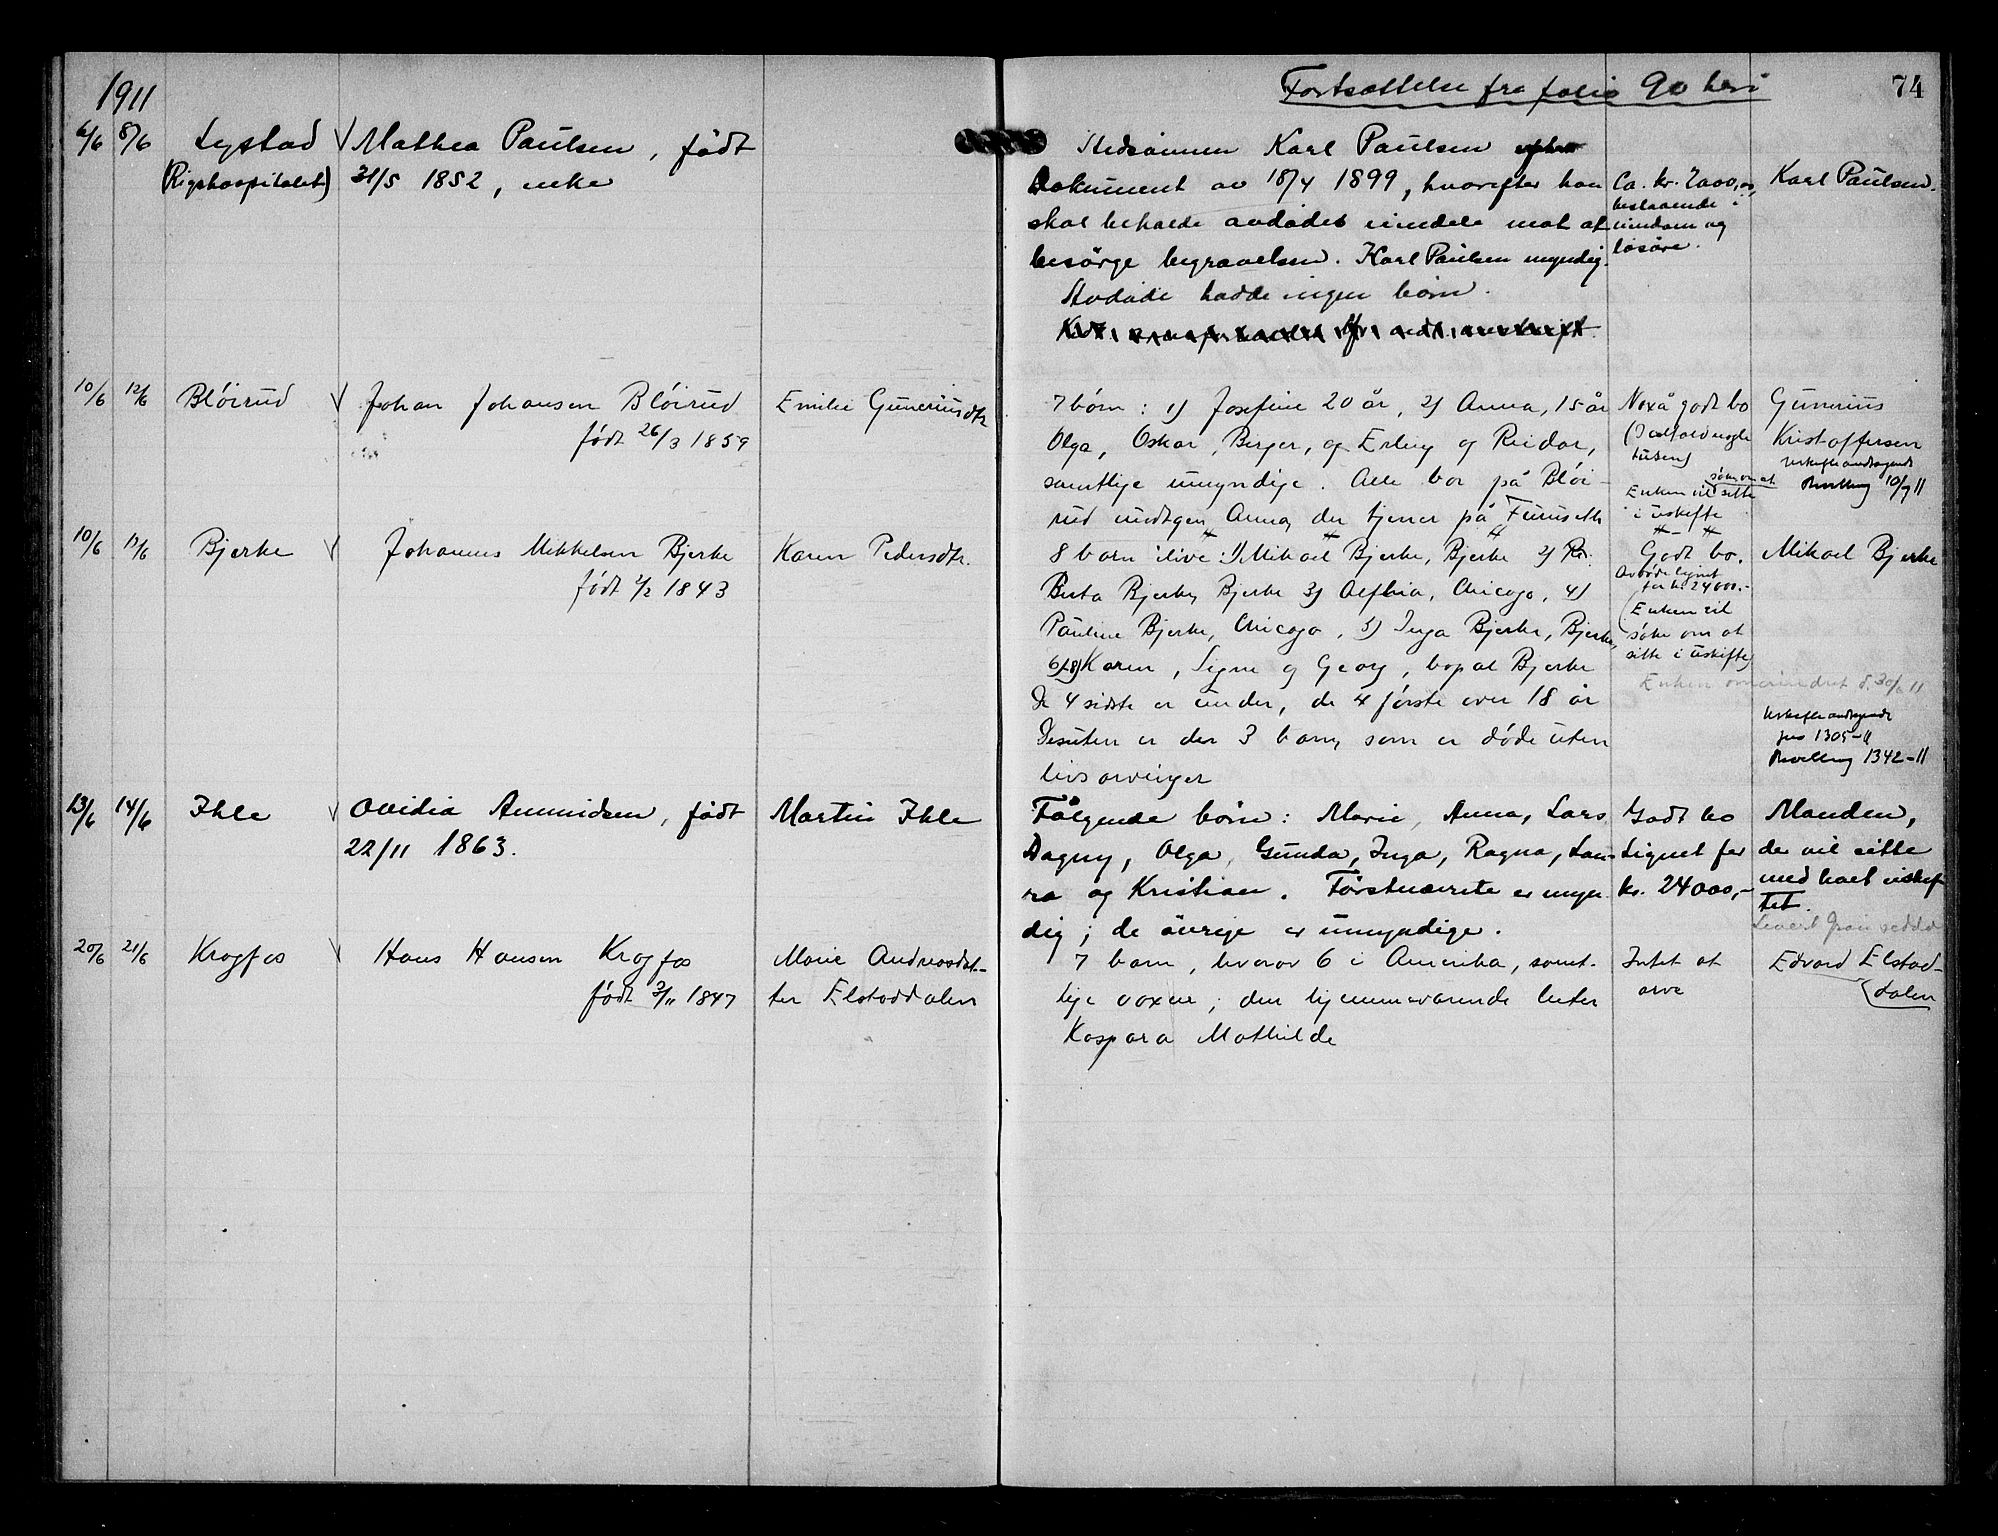 1911
Fortsættelse fra folio 90 heri
74
6/6 8/6 Lystad Mathea Paulsen, født
(Rigshospitalet) 31/5 1852, enke
Stedsønnen Karl Paulsen
Dokument av 18/4 1899, hvorefter han
skal beholde avdødes eiendele mot at
besørge begravelsen. Karl Paulsen myndig.
Avdøde hadde ingen børn.
Ca. kr. 2000,00
bestaaende i
eiendom og
løsøre.
Karl Paulsen.
10/6 12/6 Bløirud Johan Johansen Bløirud
født 26/3 1859
Emilie Guneriusdtr
7 børn: 1) Josefine 20 år, 2) Anna, 15 år
Olga, Oskar, Berger, og Erling og Reidar,
samtlige umyndige. Alle bor på Bløi-
rud undtgen Anna, der tjener på Furuseth
Noxå godt bo
(I alfald nogle
tusen)
søke om at
Enken vil sitte
i uskifte
Gunerius
Kristoffersen
Uskifteandragende
Bevilling 10/7 11
10/6 12/6 Bjerke Johannes Mikkelsen Bjerke
født 2/2 1843
Karen Pedersdtr.
8 barn ilive: 1) Mikael Bjerke, Bjerke 2)
Berta Bjerke, Bjerke 3) Alfhia, Chicago, 4)
Pauline Bjerke, Chicago, 5) Inga Bjerke, Bjerke,
6)-8) Karen, Signe og Georg, bopæl Bjerke
De 4 sidste er under, de 4 første over 18 år
Desuten er der 3 barn, som er døde uten
livsarvinger
Godt bo.
Avdøde lignet
for kr 24000.-
(Enken vil
søke om at
sitte i uskifte)
Enken omerindret d. 30/6 11
Mikael Bjerke
Uskifteandragende
jno 1305-11
Bevilling 1342-11
13/6 14/6 Ihle Ovidia Amundsen, født
22/11 1863.
Martin Ihle
Følgende børn: Marie, Anna, Lars
Dagny, Olga, Gunda, Inga, Ragna, Lau-
ra og Kristian. Førstnævnte er myn-
dig; de øvrige er umyndige.
Godt bo
Lignet for
kr. 24000,-
Manden,
der vil sitte
med boet uskif-
tet.
20/6 21/6 Krogfos Hans Hansen Krogfos
født 3/11 1847
Marie Andreasdat-
ter Elstaddalen
7 barn, hvorav 6 i Amerika, samt-
lige voxne; den hjemmeværende heter
Kaspara Mathilde
Intet at
arve
Edvard Elstad-
dalen